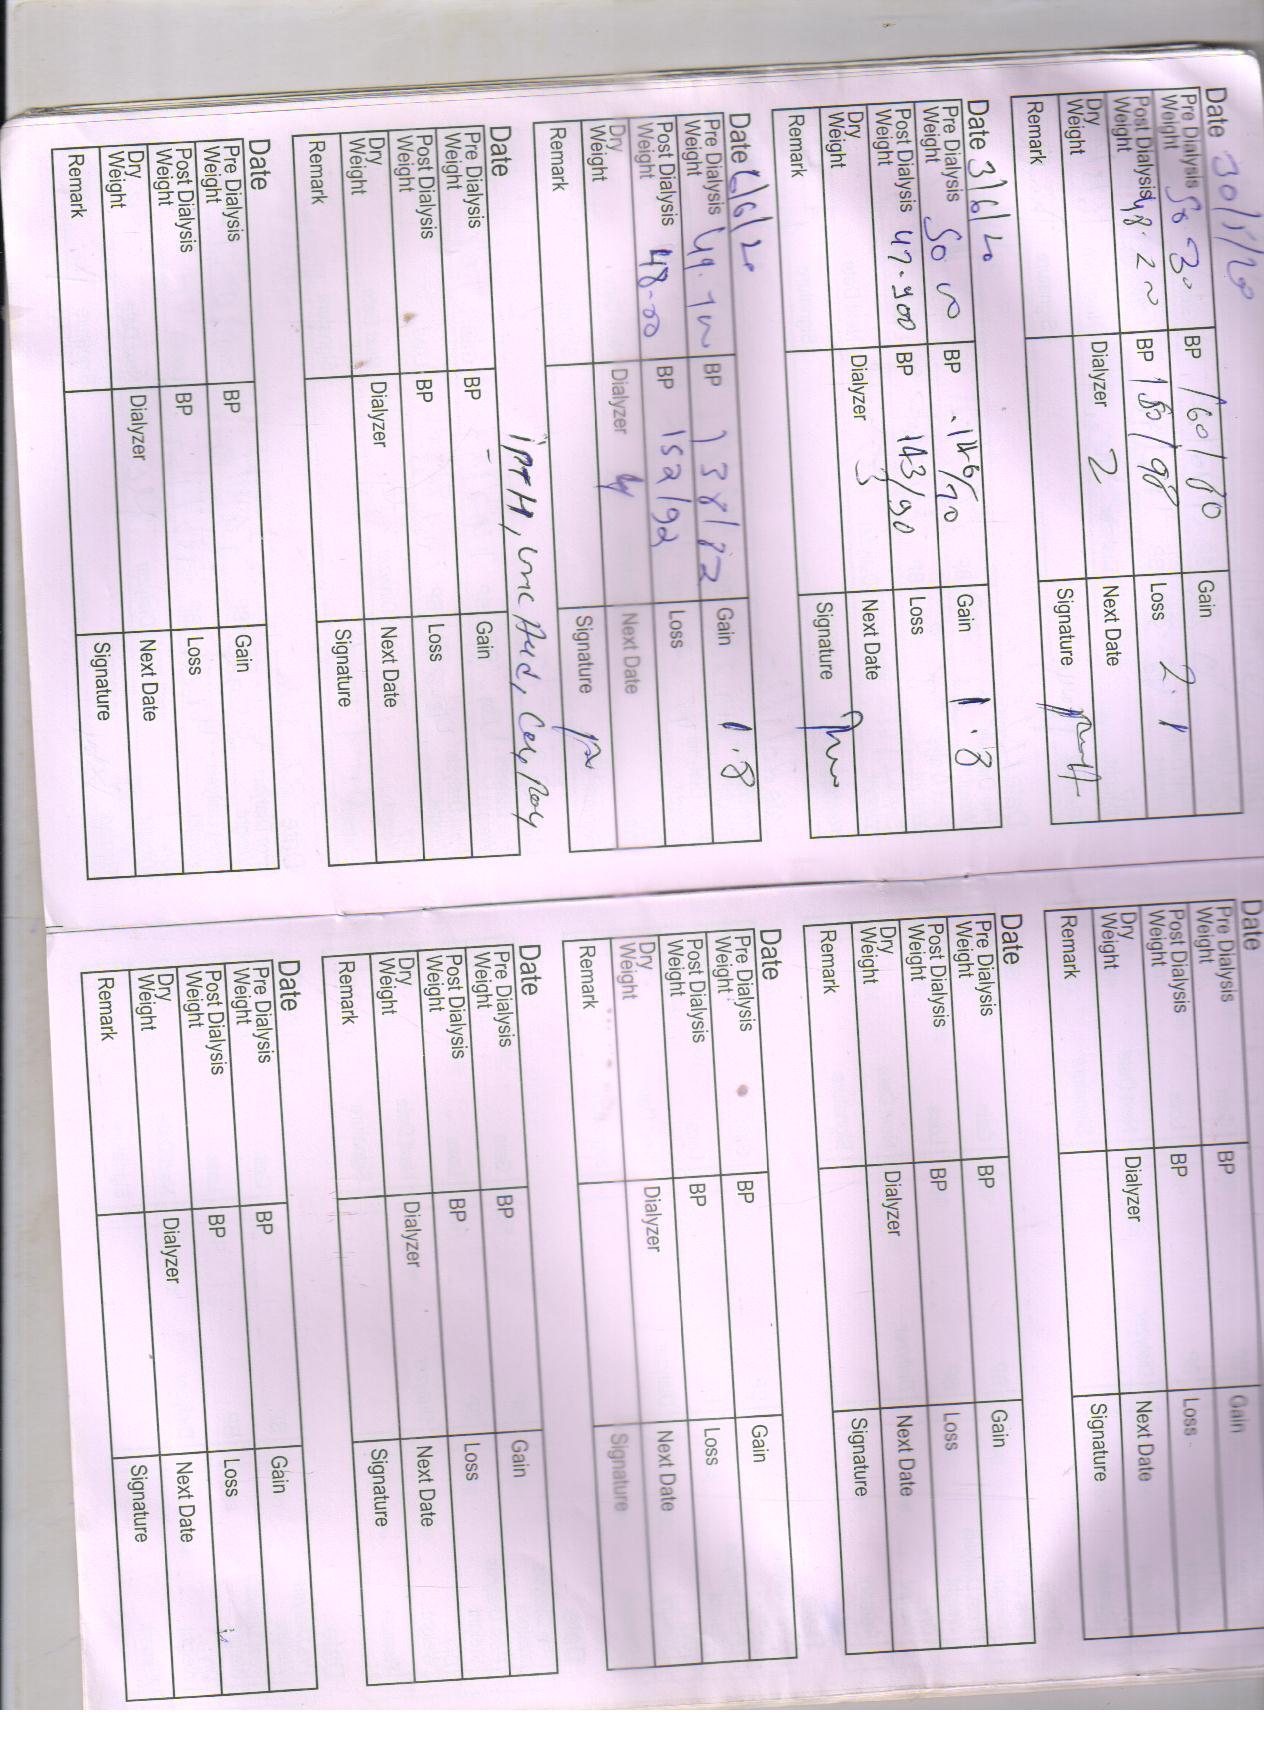 Date 30/5/20
Pre Dialysis Weight 50.30 BP 160/80 Gain
Post Dialysis Weight 48.200 BP 180/98 Loss 2.1
Dry Weight Dialyzer 2 Next Date
Remark Signature
Date 3/6/20
Pre Dialysis Weight 50 BP 146/70 Gain 1.8
Post Dialysis Weight 47.900 BP 143/90 Loss
Dry Weight Dialyzer 3 Next Date
Remark Signature
Date 6/6/20
Pre Dialysis Weight 49.700 BP 138/82 Gain 1.8
Post Dialysis Weight 48.00 BP 152/92 Loss
Dry Weight Dialyzer 4 Next Date
Remark Signature
Date iPTH,
Pre Dialysis Weight BP Gain
Post Dialysis Weight BP Loss
Dry Weight Dialyzer Next Date
Remark Signature
Date
Pre Dialysis Weight BP Gain
Post Dialysis Weight BP Loss
Dry Weight Dialyzer Next Date
Remark Signature
Date
Pre Dialysis Weight BP Gain
Post Dialysis Weight BP Loss
Dry Weight Dialyzer Next Date
Remark Signature
Date
Pre Dialysis Weight BP Gain
Post Dialysis Weight BP Loss
Dry Weight Dialyzer Next Date
Remark Signature
Date
Pre Dialysis Weight BP Gain
Post Dialysis Weight BP Loss
Dry Weight Dialyzer Next Date
Remark Signature
Date
Pre Dialysis Weight BP Gain
Post Dialysis Weight BP Loss
Dry Weight Dialyzer Next Date
Remark Signature
Date
Pre Dialysis Weight BP Gain
Post Dialysis Weight BP Loss
Dry Weight Dialyzer Next Date
Remark Signature